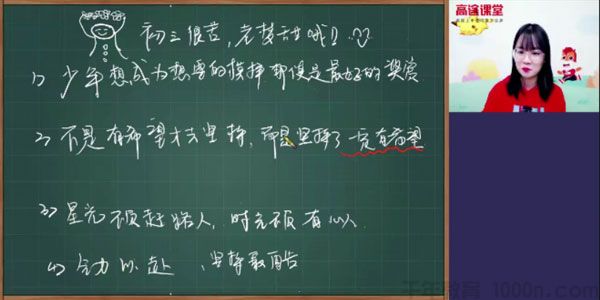 初三很苦,老梦甜哦! 
1) 少年想成为想要的模样 那便是最好的奖赏
2) 不是有希望才去坚持,而是坚持了一定有希望
3) 星光不负赶路人,时光不负有心人
4) 全力以赴、坚持最
高途课堂
千年教育 1000n.com